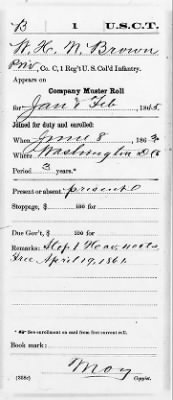 B | 1 | U.S.C.T.
W. H. N. Brown
Pvt, Co. C, 1 Reg't U. S. Col'd Infantry.
Appears on
Company Muster Roll
for Jan & Feb, 1865.
Joined for duty and enrolled:
When June 8, 1863
Where Washington D.C.
Period 3 years.*
Present or absent present
Stoppage, $ 100 for
Due Gov't, $ 100 for
Remarks:
Free April 19, 1861.
* See enrollment on card from first current roll.
Book mark:
May
(358c) Copyist.